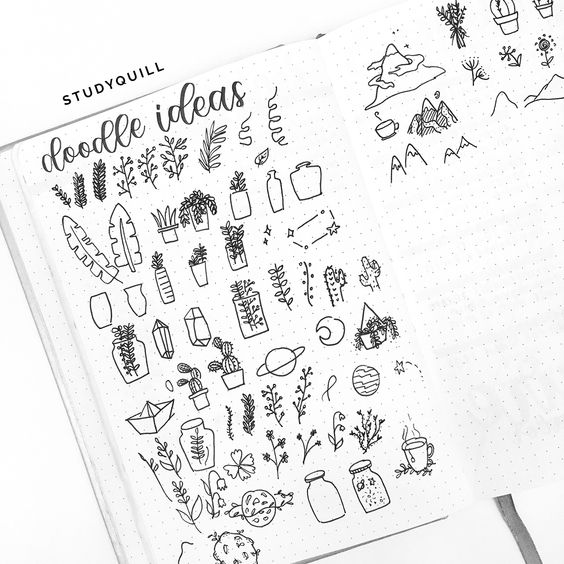 STUDYQUILL
doodle ideas